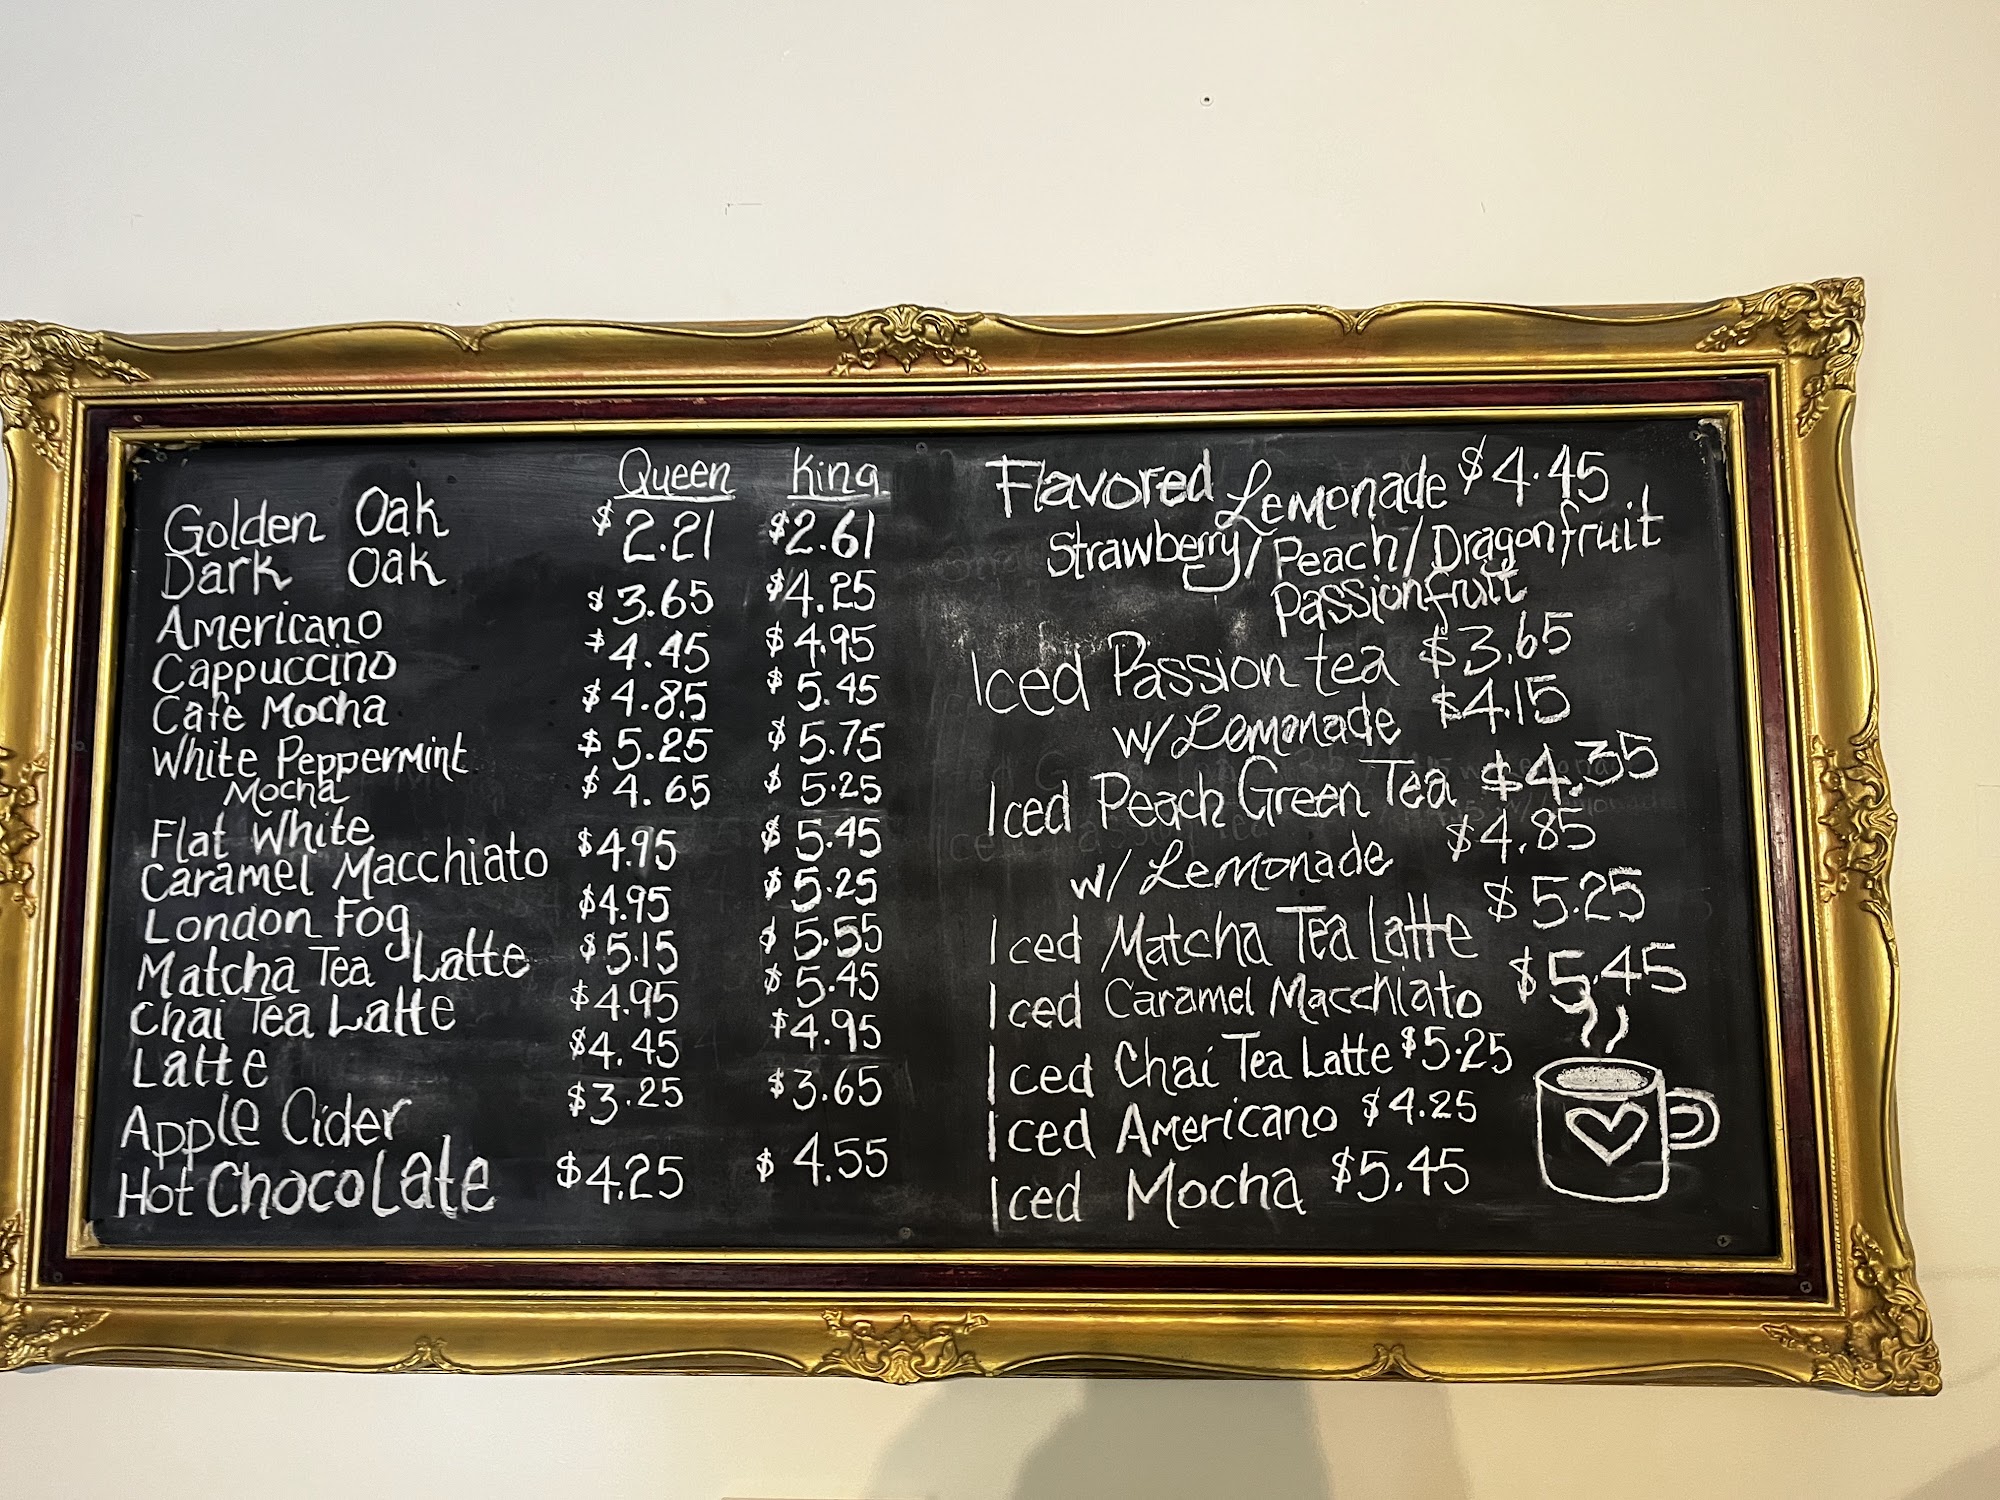 Queen King
Golden Oak $2.21 $2.61
Dark Oak
Americano $3.65 $4.25
Cappuccino $4.45 $4.95
Cafe Mocha $4.85 $5.45
White Peppermint $5.25 $5.75
Mocha
Flat White $4.65 $5.25
Caramel Macchiato $4.95 $5.45
London Fog $4.95 $5.25
Matcha Tea Latte $5.15 $5.55
Chai Tea Latte $4.95 $5.45
Latte $4.45 $4.95
Apple Cider $3.25 $3.65
Hot Chocolate $4.25 $4.55
Flavored Lemonade $4.45
Strawberry/Peach/Dragonfruit
Passionfruit
Iced Passion tea $3.65
w/ Lemonade $4.15
Iced Peach Green Tea $4.35
w/ Lemonade $4.85
Iced Matcha Tea Latte $5.25
Iced Caramel Macchiato $5.45
Iced Chai Tea Latte $5.25
Iced Americano $4.25
Iced Mocha $5.45